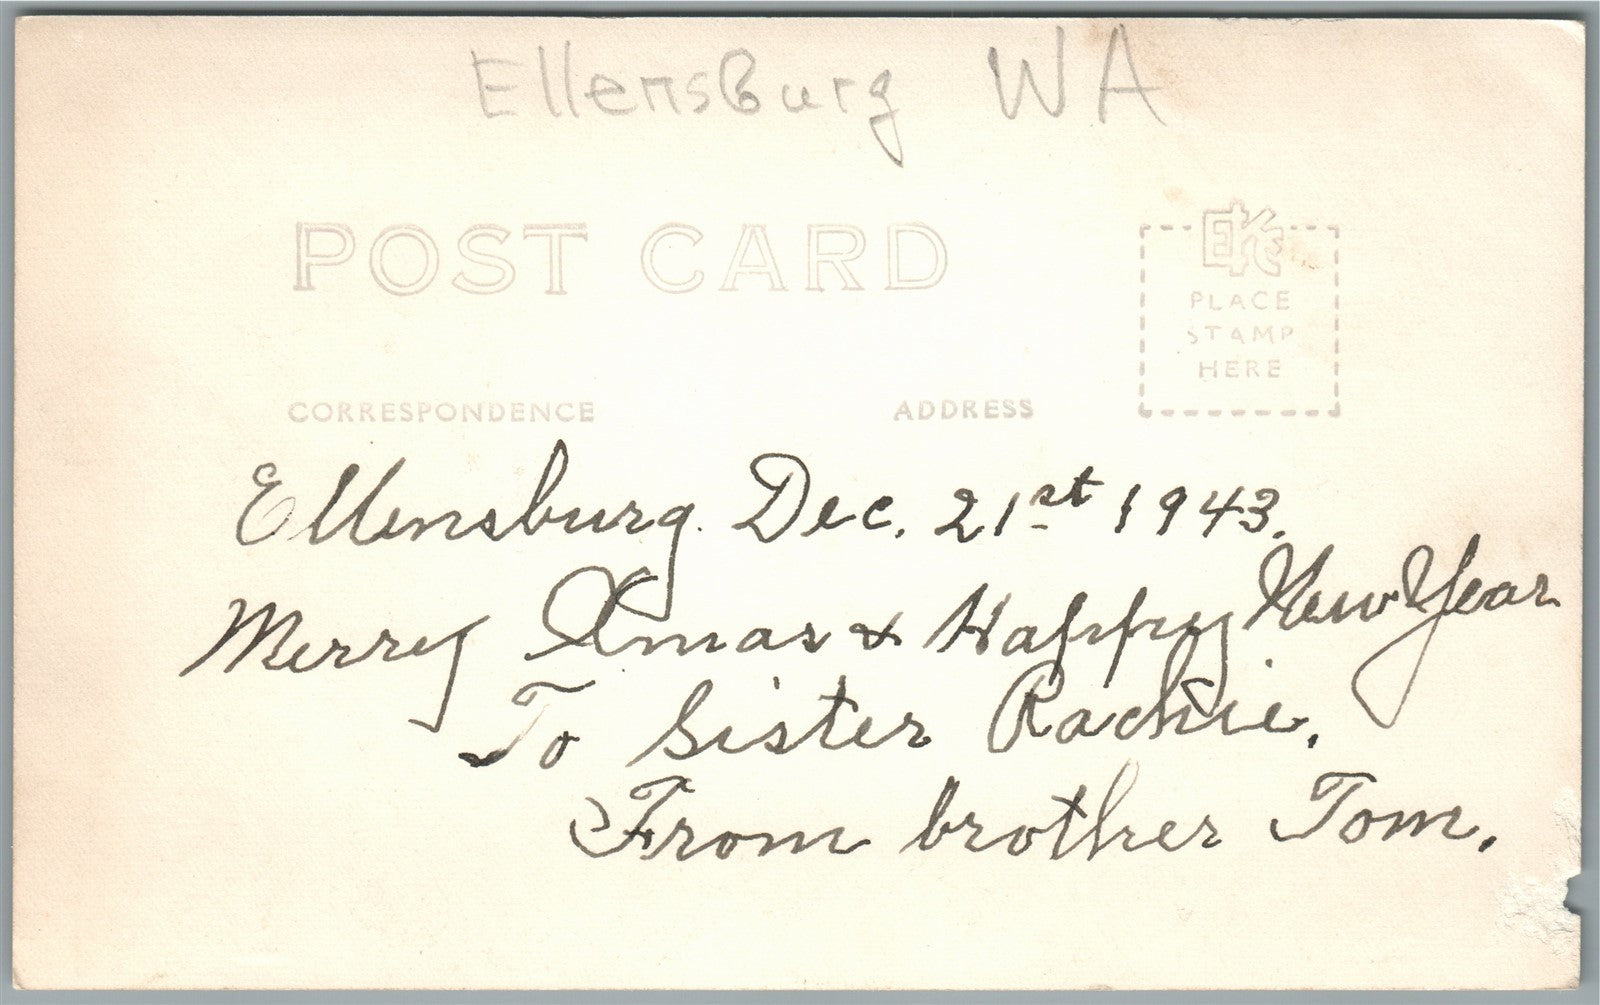 Ellensburg WA
POST CARD
EKC
PLACE
STAMP
HERE
CORRESPONDENCE ADDRESS
Ellensburg. Dec. 21st 1943.
Merry Xmas & Happy New Year
To Sister Rachie.
From brother Tom.